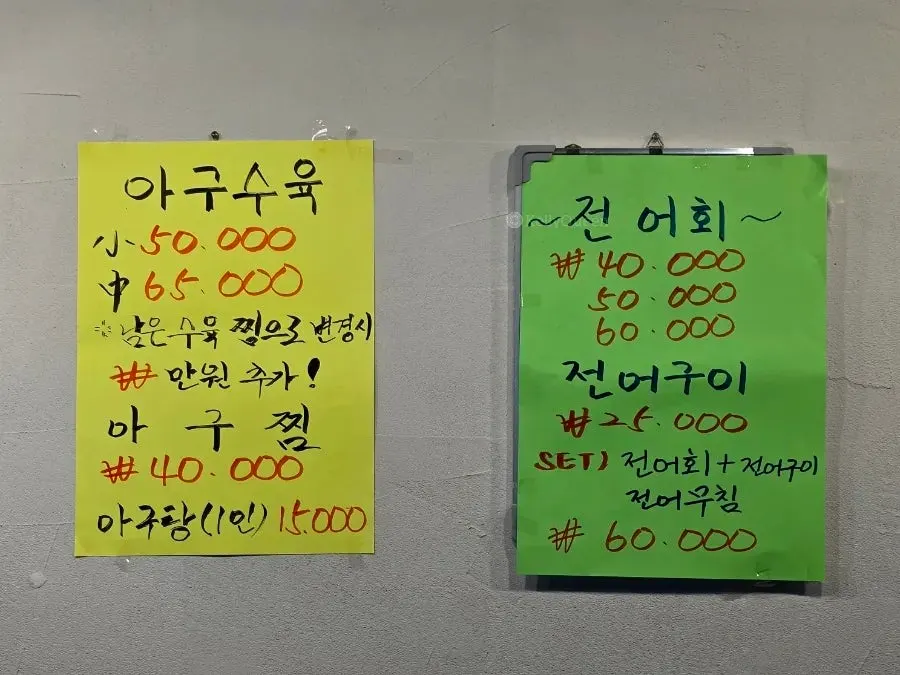 아구수육
小 50.000
中 65.000
※남은 수육 찜으로 변경시
₩ 만원 추가!
아 구 찜
₩ 40.000
아구탕(1인) 15.000
~전 어회~
₩ 40.000
50.000
60.000
전어구이
₩ 25.000
SET) 전어회 + 전어구이
전어무침
₩ 60.000